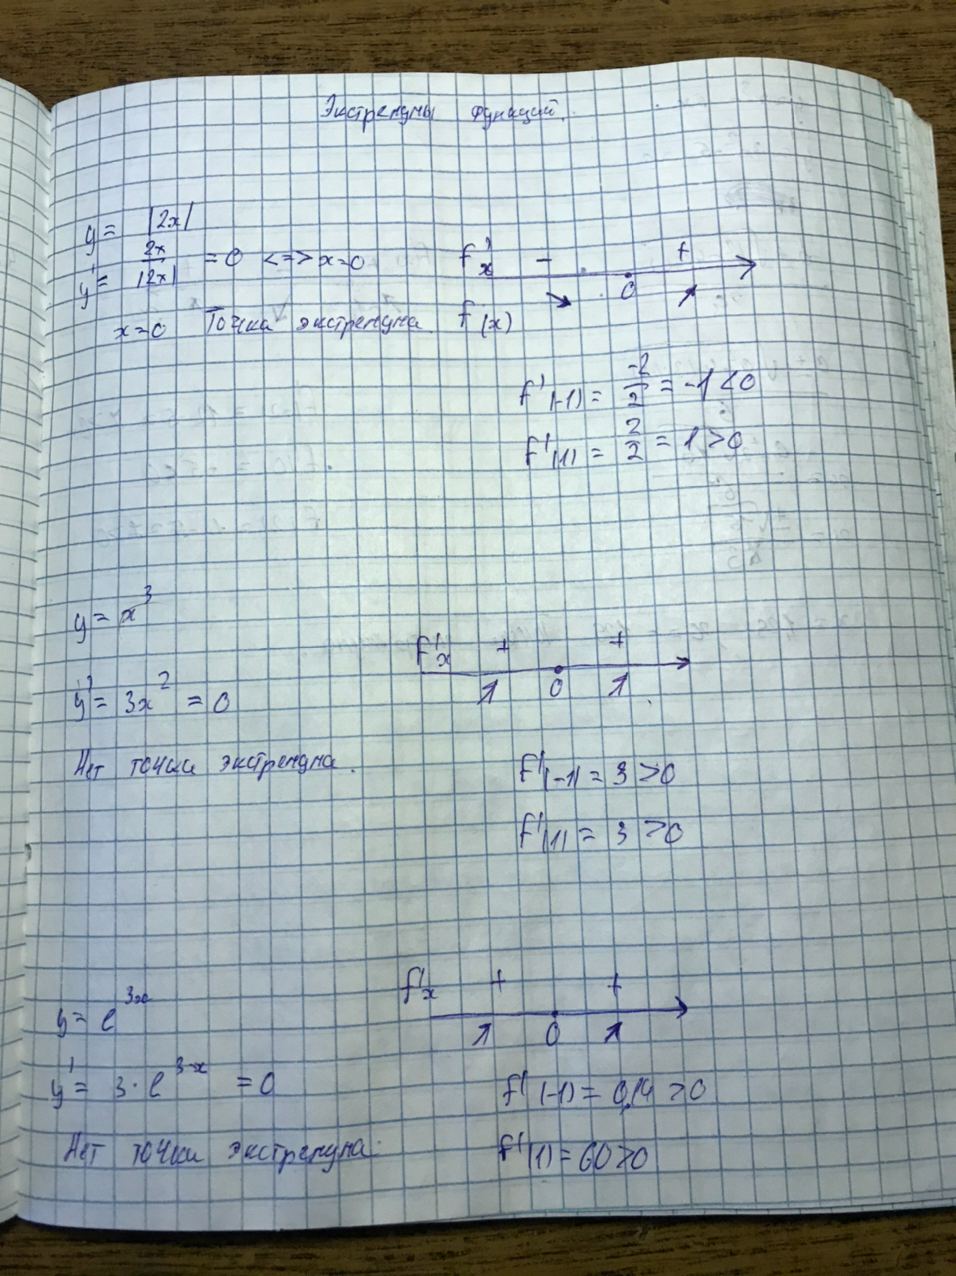 Экстремумы функций.
y = |2x|
y' = 2x/|2x| = 0 <=> x=0
x=0 Точка экстремума
f'x - +
0
f(x)
f'(-1) = -2/2 = -1 < 0
f'(1) = 2/2 = 1 > 0
y = x³
y' = 3x² = 0
Нет точки экстремума.
f'x + +
0
f'(-1) = 3 > 0
f'(1) = 3 > 0
y = e^3x
y' = 3·e^3·x = 0
Нет точки экстремума
f'x + +
0
f'(-1) = 0,14 > 0
f'(1) = 60 > 0